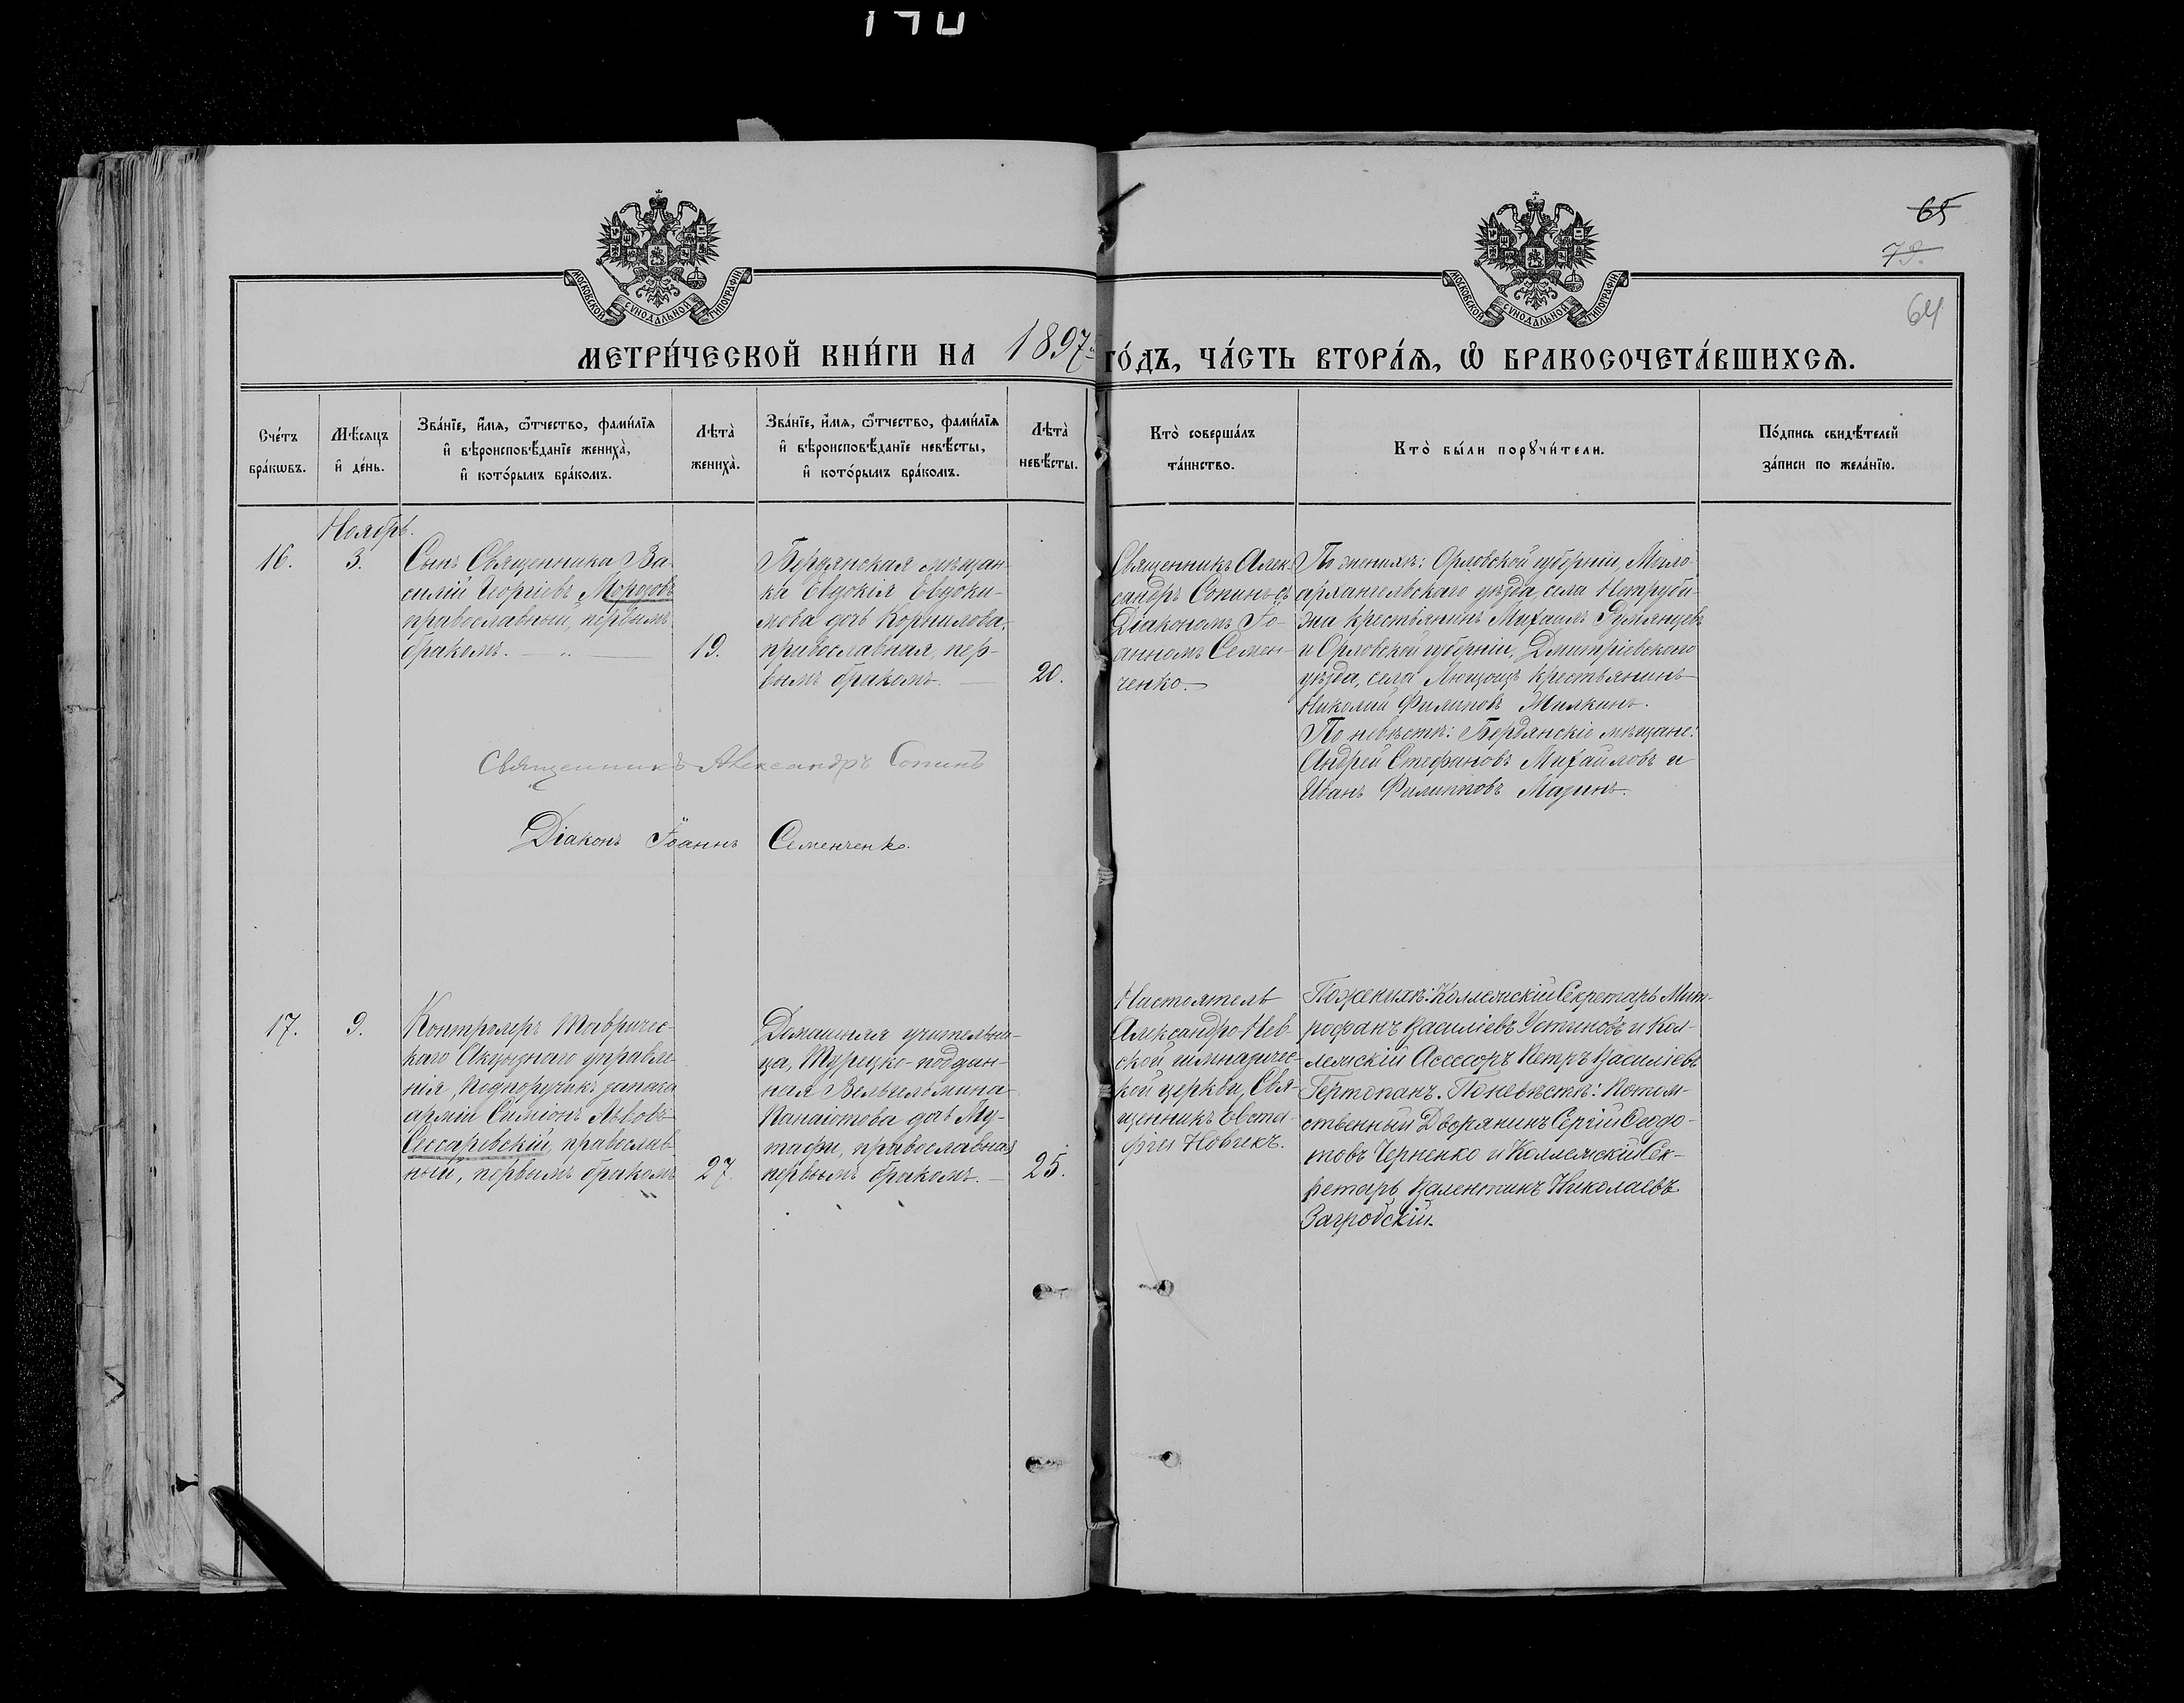 65
73.
64
МОСКОВСКОЙ СѴНОДАЛЬНОЙ ТИПОГРАФІИ
МОСКОВСКОЙ СѴНОДАЛЬНОЙ ТИПОГРАФІИ
МЕТРИ́ЧЕСКОЙ КНИ́ГИ НА 1897 ГО́ДЪ, ЧА́СТЬ ВТОРА́Я, Ѡ БРАКОСОЧЕТА́ВШИХСЯ.
Сче́тъ
бра́кѡвъ.
Мѣ́сяцъ
и҆ де́нь.
Зва́нїе, и҆́мя, ѻ҆́тчество, фами́лїя
и҆ вѣроисповѣ́данїе жениха̀,
и҆ кото́рымъ бра́комъ.
Лѣта̀
жениха̀.
Зва́нїе, и҆́мя, ѻ҆́тчество, фами́лїя
и҆ вѣроисповѣ́данїе невѣ́сты,
и҆ кото́рымъ бра́комъ.
Лѣта̀
невѣ́сты.
Кто̀ соверша́лъ
та́инство.
Кто̀ бы́ли порꙋчи́тели.
По́дпись свидѣ́телей
за́писи по жела́нїю.
Ноябрь.
16.
3.
Сынъ Священника Ва-
силій Георгіевъ Морозовъ
православный, первымъ
бракомъ.
19.
Бердянская мѣщан-
ка Евдокія Евдоки-
мова дочь Корнилова,
православная, пер-
вымъ бракомъ.
20.
Священникъ Алек-
сандръ Сопинъ съ
Діакономъ Іо-
анномъ Семен-
ченко.
По женихѣ: Орловской губерніи, Мило-
архангельскаго уѣзда, села
крестьянинъ Михаилъ Румянцевъ
и Орловской губерніи, Дмитріевскаго
уѣзда, села крестьянинъ
Николай Филиповъ Жилкинъ.
По невѣстѣ: Бердянскіе мѣщане:
Андрей Стефановъ Михайловъ и
Иванъ Филипповъ Мазинъ.
Священникъ Александръ Сопинъ
Діаконъ Іоаннъ Семенченко.
17.
9.
Контролеръ Тавричес-
каго Акцизнаго управле-
нія, Подпоручикъ запаса
арміи Симеонъ Львовъ
Сессаревскій, православ-
ный, первымъ бракомъ
27.
Домашняя учительни-
ца, Турецко-поддан-
ная Вельгельмина
Панаіотова дочь Му-
тафи, православная
первымъ бракомъ.
25.
Настоятель
Александро-Нев-
ской гимназичес-
кой церкви, Свя-
щенникъ Евста-
фій Новикъ.
По женихѣ: Коллежскій Секретарь Мит-
рофанъ Василіевъ Устиновъ и Кол-
лежскій Асессоръ Петръ Василіевъ
Гертопанъ. По невѣстѣ: Потом-
ственный Дворянинъ Сергій Ѳеодо-
товъ Черненко и Коллежскій Сек-
ретарь Валентинъ Николаевъ
Загродскій.